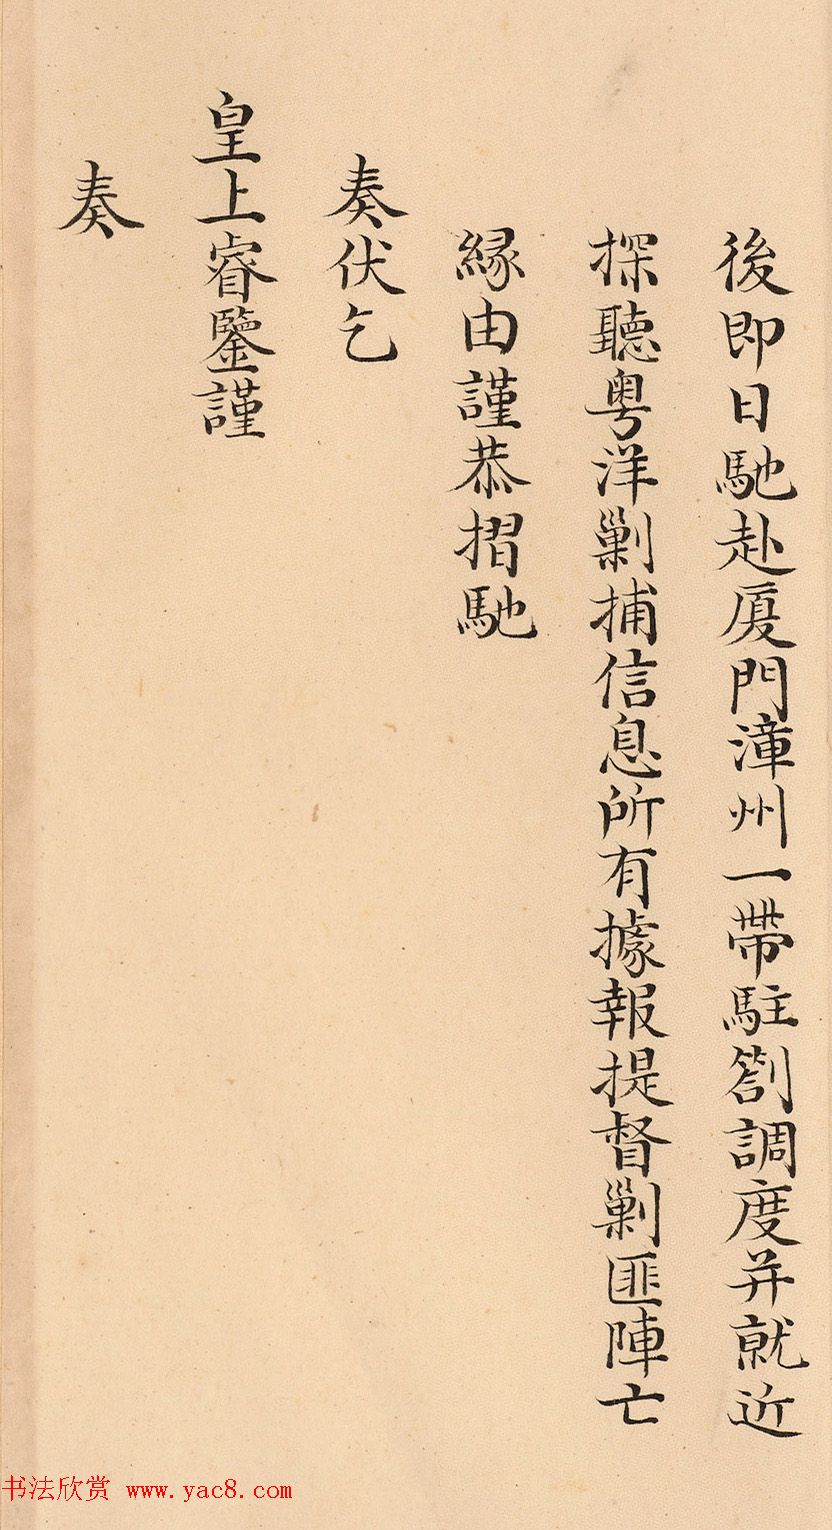 後即日馳赴厦門漳州一帶駐劄調度并就近
探聽粤洋剿捕信息所有據報提督剿匪陣亡
緣由謹恭摺馳
奏伏乞
皇上睿鑒謹
奏
书法欣赏 www.yac8.com